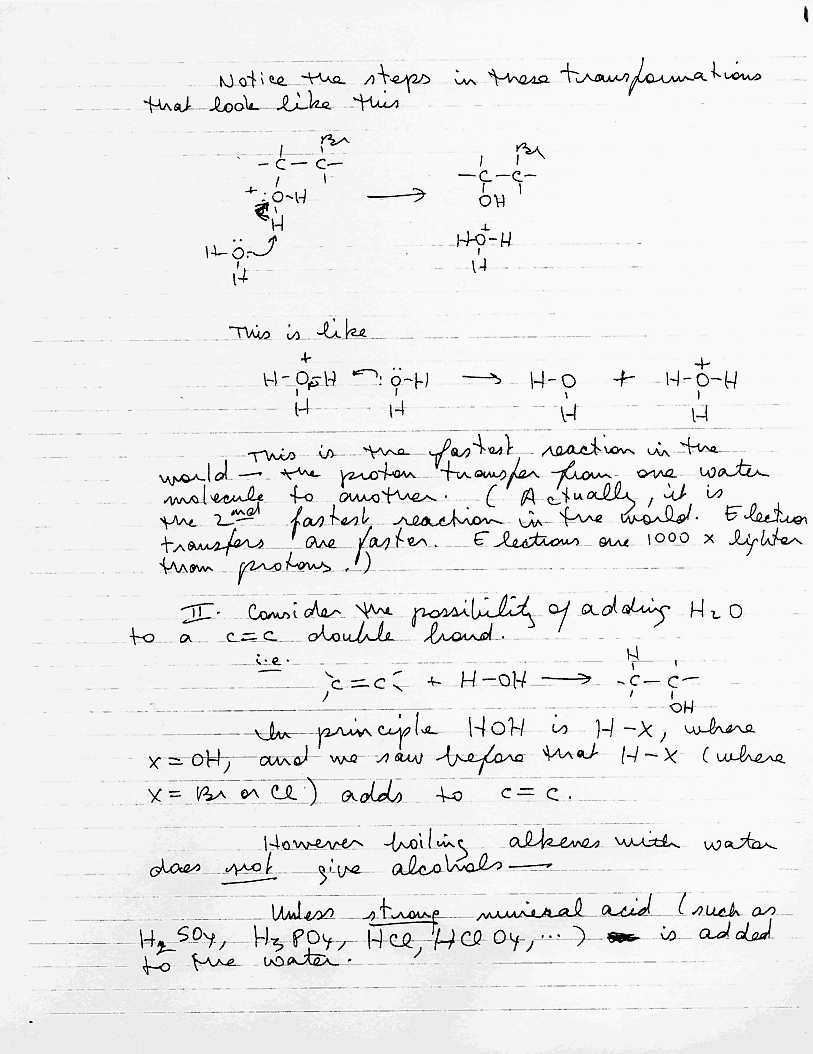 Notice the steps in these transformations
that look like this
Br Br
- C - C - - C - C -
+ : O - H → OH
H H - O - H
H - O : +
H H
This is like
+ +
H - O - H : O - H → H - O + H - O - H
H H H H
This is the fastest reaction in the
world — the proton transfer from one water
molecule to another. (Actually, it is
the 2nd fastest reaction in the world. Electron
transfers are faster. Electrons are 1000 x lighter
than protons.!)
II. Consider the possibility of adding H2O
to a C=C double bond.
i.e. H
C = C + H-OH → - C - C -
OH
In principle HOH is H-X, where
X = OH, and we saw before that H-X (where
X = Br or Cl) adds to C = C.
However boiling alkenes with water
does not give alcohols —
Unless strong mineral acid (such as
H2SO4, H3PO4, HCl, HClO4, ...) is added
to the water.